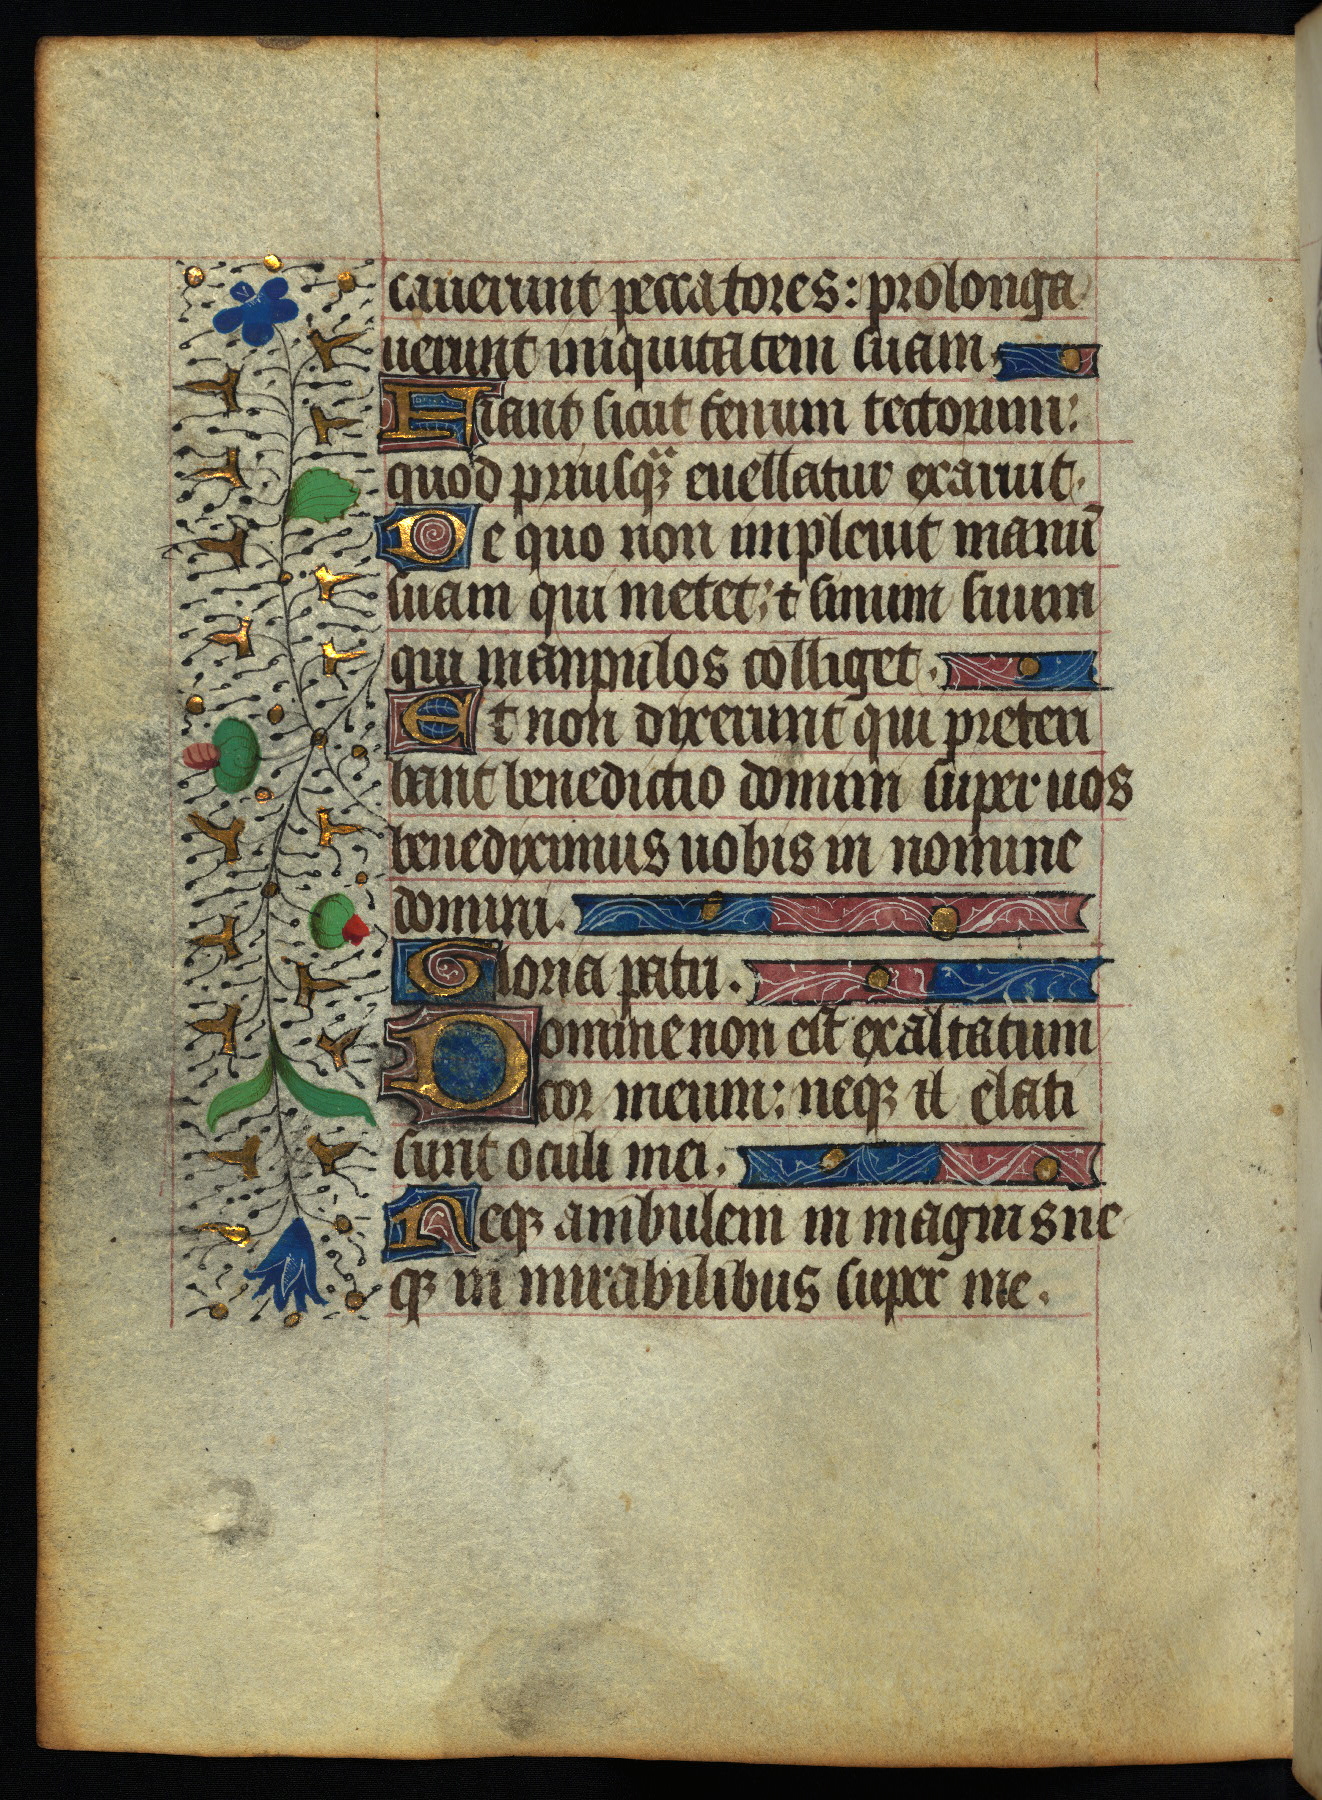 cauerunt peccatores: prolonga
uerunt iniquitatem suam.
Fiant sicut fenum tectorum:
quod priusqᷓ euellatur exaruit.
De quo non impleuit manū
suam qui metet: ⁊ sinum suum
qui manpulos colliget.
Et non dixerunt qui preteri
bant benedictio domini super uos
benediximus uobis in nomine
domini.
Gloria patri.
Domine non est exaltatum
cor meum: neqꝫ elati
sunt oculi mei.
Neqꝫ ambulem in magnis ne
qꝫ in mirabilibus super me.